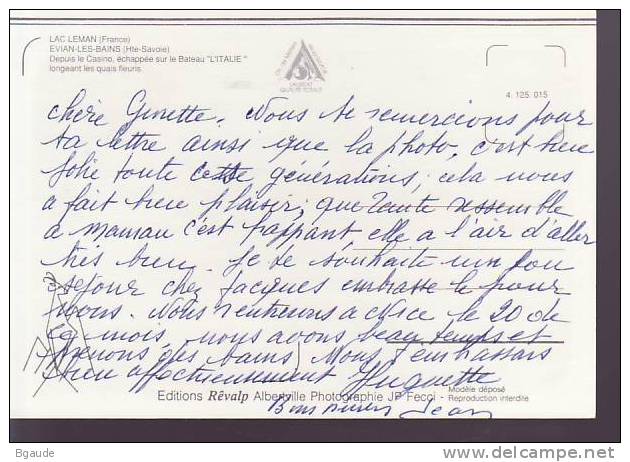 LAC LEMAN (France)
EVIAN-LES-BAINS (Hte-Savoie)
Depuis le Casino, échappée sur le Bateau "L'ITALIE"
longeant les quais fleuris.
LAURÉAT
QUALITÉ TOTALE
4. 125. 015
chère Ginette. Nous te remercions pour
ta lettre ainsi que la photo, c'est bien
jolie toute cette générations, cela nous
a fait bien plaisir, que ressemble
a maman c'est frappant elle a l'air d'aller
très bien. Je te souhaite un bon
séjour chez Jacques embrasse le pour
nous. Nous rentrerons a Nice le 20 de
ce mois, nous avons beau temps et
prenons des bains. Nous t'embrassons
bien affectueusement Huguette
Modèle déposé
Editions Rêvalp Albertville Photographie JP Fecci - Reproduction interdite
Bons baisers Jean
www.delcampe.net
Cagouille